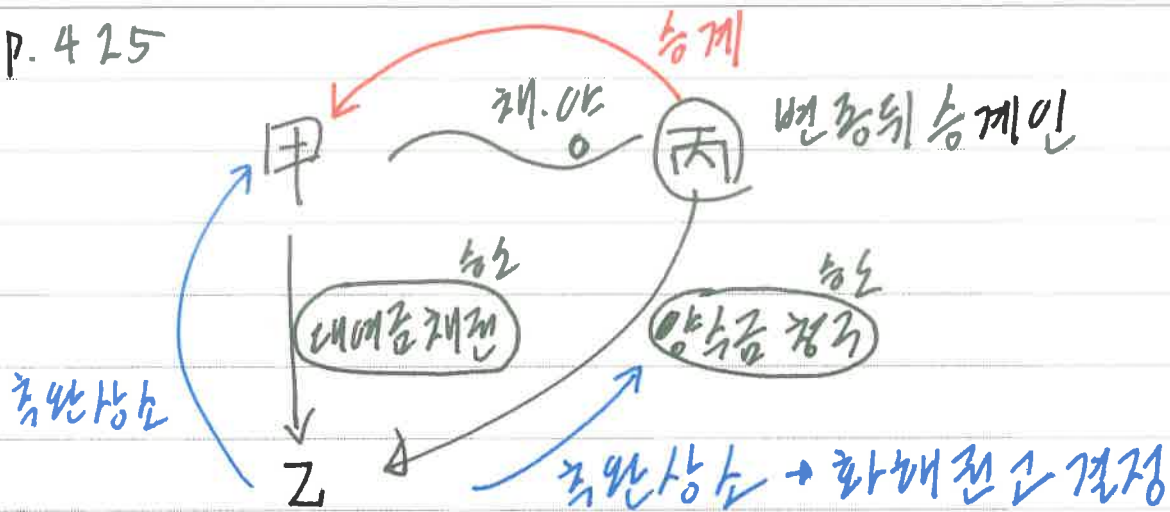 p. 425
승계
채.양
甲
丙
변종뒤 승계인
승소
대여금채권
승소
양수금 청구
추완상소
乙
추완상소 → 화해권고결정